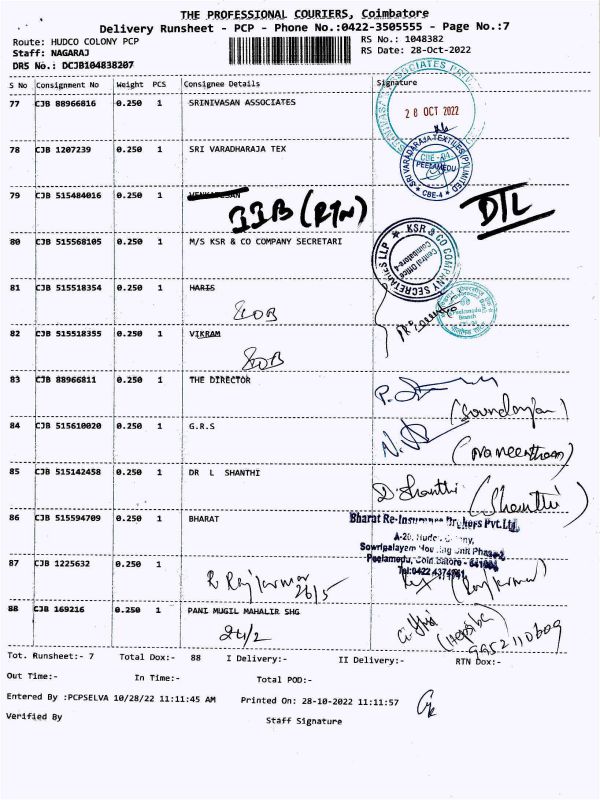 THE PROFESSIONAL COURIERS, Coimbatore
Delivery Runsheet - PCP - Phone No.:0422-3505555 - Page No.:7
Route: HUDCO COLONY PCP RS No.: 1048382
Staff: NAGARAJ RS Date: 28-Oct-2022
DRS No.: DCJB104838207
S No Consignment No Weight PCS Consignee Details Signature
77 CJB 88966816 0.250 1 SRINIVASAN ASSOCIATES
28 OCT 2022
78 CJB 1207239 0.250 1 SRI VARADHARAJA TEX
SRI VARADARAJA TEXTILES (P) LIMITED
PEELAMEDU
CBE-4
79 CJB 515484016 0.250 1
(RTN) DTL
80 CJB 515568105 0.250 1 M/S KSR & CO COMPANY SECRETARI
KSR & CO COMPANY SECRETARIES LLP
Central Office
Coimbatore-4
81 CJB 515518354 0.250 1 HARIS
82 CJB 515518355 0.250 1 VIKRAM
83 CJB 88966811 0.250 1 THE DIRECTOR
84 CJB 515610020 0.250 1 G.R.S
85 CJB 515142458 0.250 1 DR L SHANTHI
D. Shanthi (Shanthi)
86 CJB 515594709 0.250 1 BHARAT
Bharat Re-Insurance Brokers Pvt.Ltd
87 CJB 1225632 0.250 1
R Rajkumar 26/5 (Rajkumar)
88 CJB 169216 0.250 1 PANI MUGIL MAHALIR SHG
24/2 9952110609
Tot. Runsheet:- 7 Total Dox:- 88 I Delivery:- II Delivery:- RTN Dox:-
Out Time:- In Time:- Total POD:-
Entered By :PCPSELVA 10/28/22 11:11:45 AM Printed On: 28-10-2022 11:11:57
Verified By Staff Signature